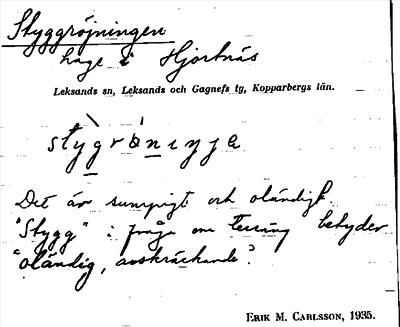 Styggröjningen
hage i Hjortnäs
Leksands sn, Leksands och Gagnefs tg, Kopparbergs län.
Det är sumpigt och oländigt.
"Stygg" i fråga om terräng betyder
"oländig, avskräckande".
ERIK M. CARLSSON, 1935.